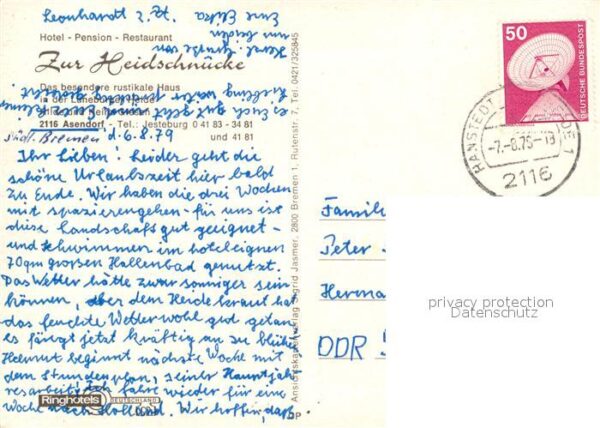 Hotel - Pension - Restaurant
Zur Heidschnucke
Das besondere rustikale Haus
in der Lüneburger Heide
2116 Asendorf - Tel.: Jesteburg 0 41 83 - 34 81
und 41 81
Südl. Bremen d. 6.8.79
Ihr Lieben! Leider geht die
schöne Urlaubszeit hier bald
zu Ende. Wir haben die drei Wochen
mit spazierengehen - für uns ist
diese Landschaft gut geeignet -
und schwimmen im hoteleignen
70qm großen Hallenbad genutzt.
Das Wetter hätte zwar sonniger sein
können, aber dem Heidekraut hat
das feuchte Wetter wohl gut getan
es fängt jetzt kräftig an zu blühen
Helmut beginnt nächste Woche mit
dem Stundenplan, seiner Hauptjah-
resarbeit. Ich fahre wieder für eine
Woche nach Holland. Wir hoffen, daß
es Euch gut geht
Herzl. Grüße von
uns beiden
Eure Erika
Leonhardt z. Zt.
Ringhotels
DEUTSCHLAND
Ansichtskartenverlag Sigrid Jasmer, 2800 Bremen 1, Rutenstr. 7, Tel. 0421/325845
50
DEUTSCHE BUNDESPOST
HANSTEDT
-7.-8.79-18
2116
Famili
Peter
Herma
DDR
privacy protection
Datenschutz